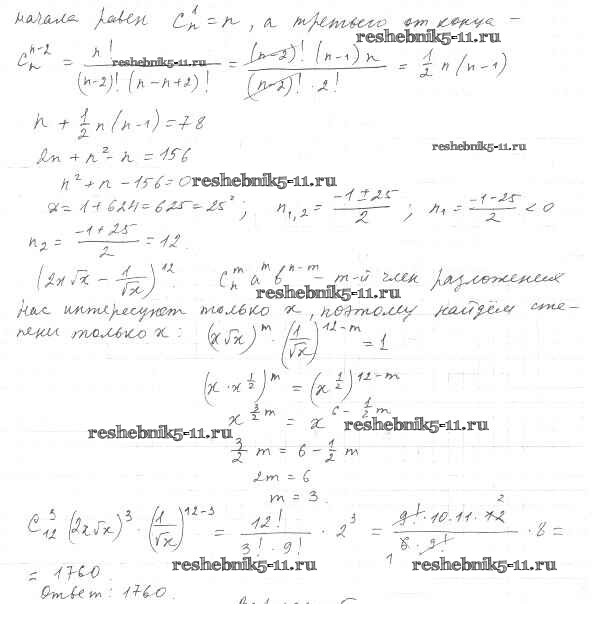 начала равен C_n^1 = n, а третьего от конца –
reshebnik5-11.ru
C_n^{n-2} = n! / ((n-2)! (n-n+2)!) = ((n-2)! (n-1) n) / ((n-2)! · 2!) = 1/2 n (n-1)
reshebnik5-11.ru
n + 1/2 n (n-1) = 78
reshebnik5-11.ru
2n + n² - n = 156
n² + n - 156 = 0
reshebnik5-11.ru
D = 1 + 624 = 625 = 25²; n_{1,2} = (-1 ± 25)/2; n_1 = (-1-25)/2 < 0
n_2 = (-1 + 25)/2 = 12.
(2x√x - 1/√x)^{12}. C_n^m a^m b^{n-m} – m-й член разложения
reshebnik5-11.ru
нас интересует только x, поэтому найдём сте-
пени только x: (x√x)^m · (1/√x)^{12-m} = 1
(x · x^{1/2})^m = (x^{1/2})^{12-m}
x^{3/2 m} = x^{6 - 1/2 m}
reshebnik5-11.ru reshebnik5-11.ru
3/2 m = 6 - 1/2 m
2m = 6
m = 3.
C_{12}^3 (2x√x)^3 · (1/√x)^{12-3} = 12! / (3! · 9!) · 2^3 = (9! · 10 · 11 · 12 2) / (1 6 · 9!) · 8 =
= 1760.
reshebnik5-11.ru reshebnik5-11.ru
Ответ: 1760.